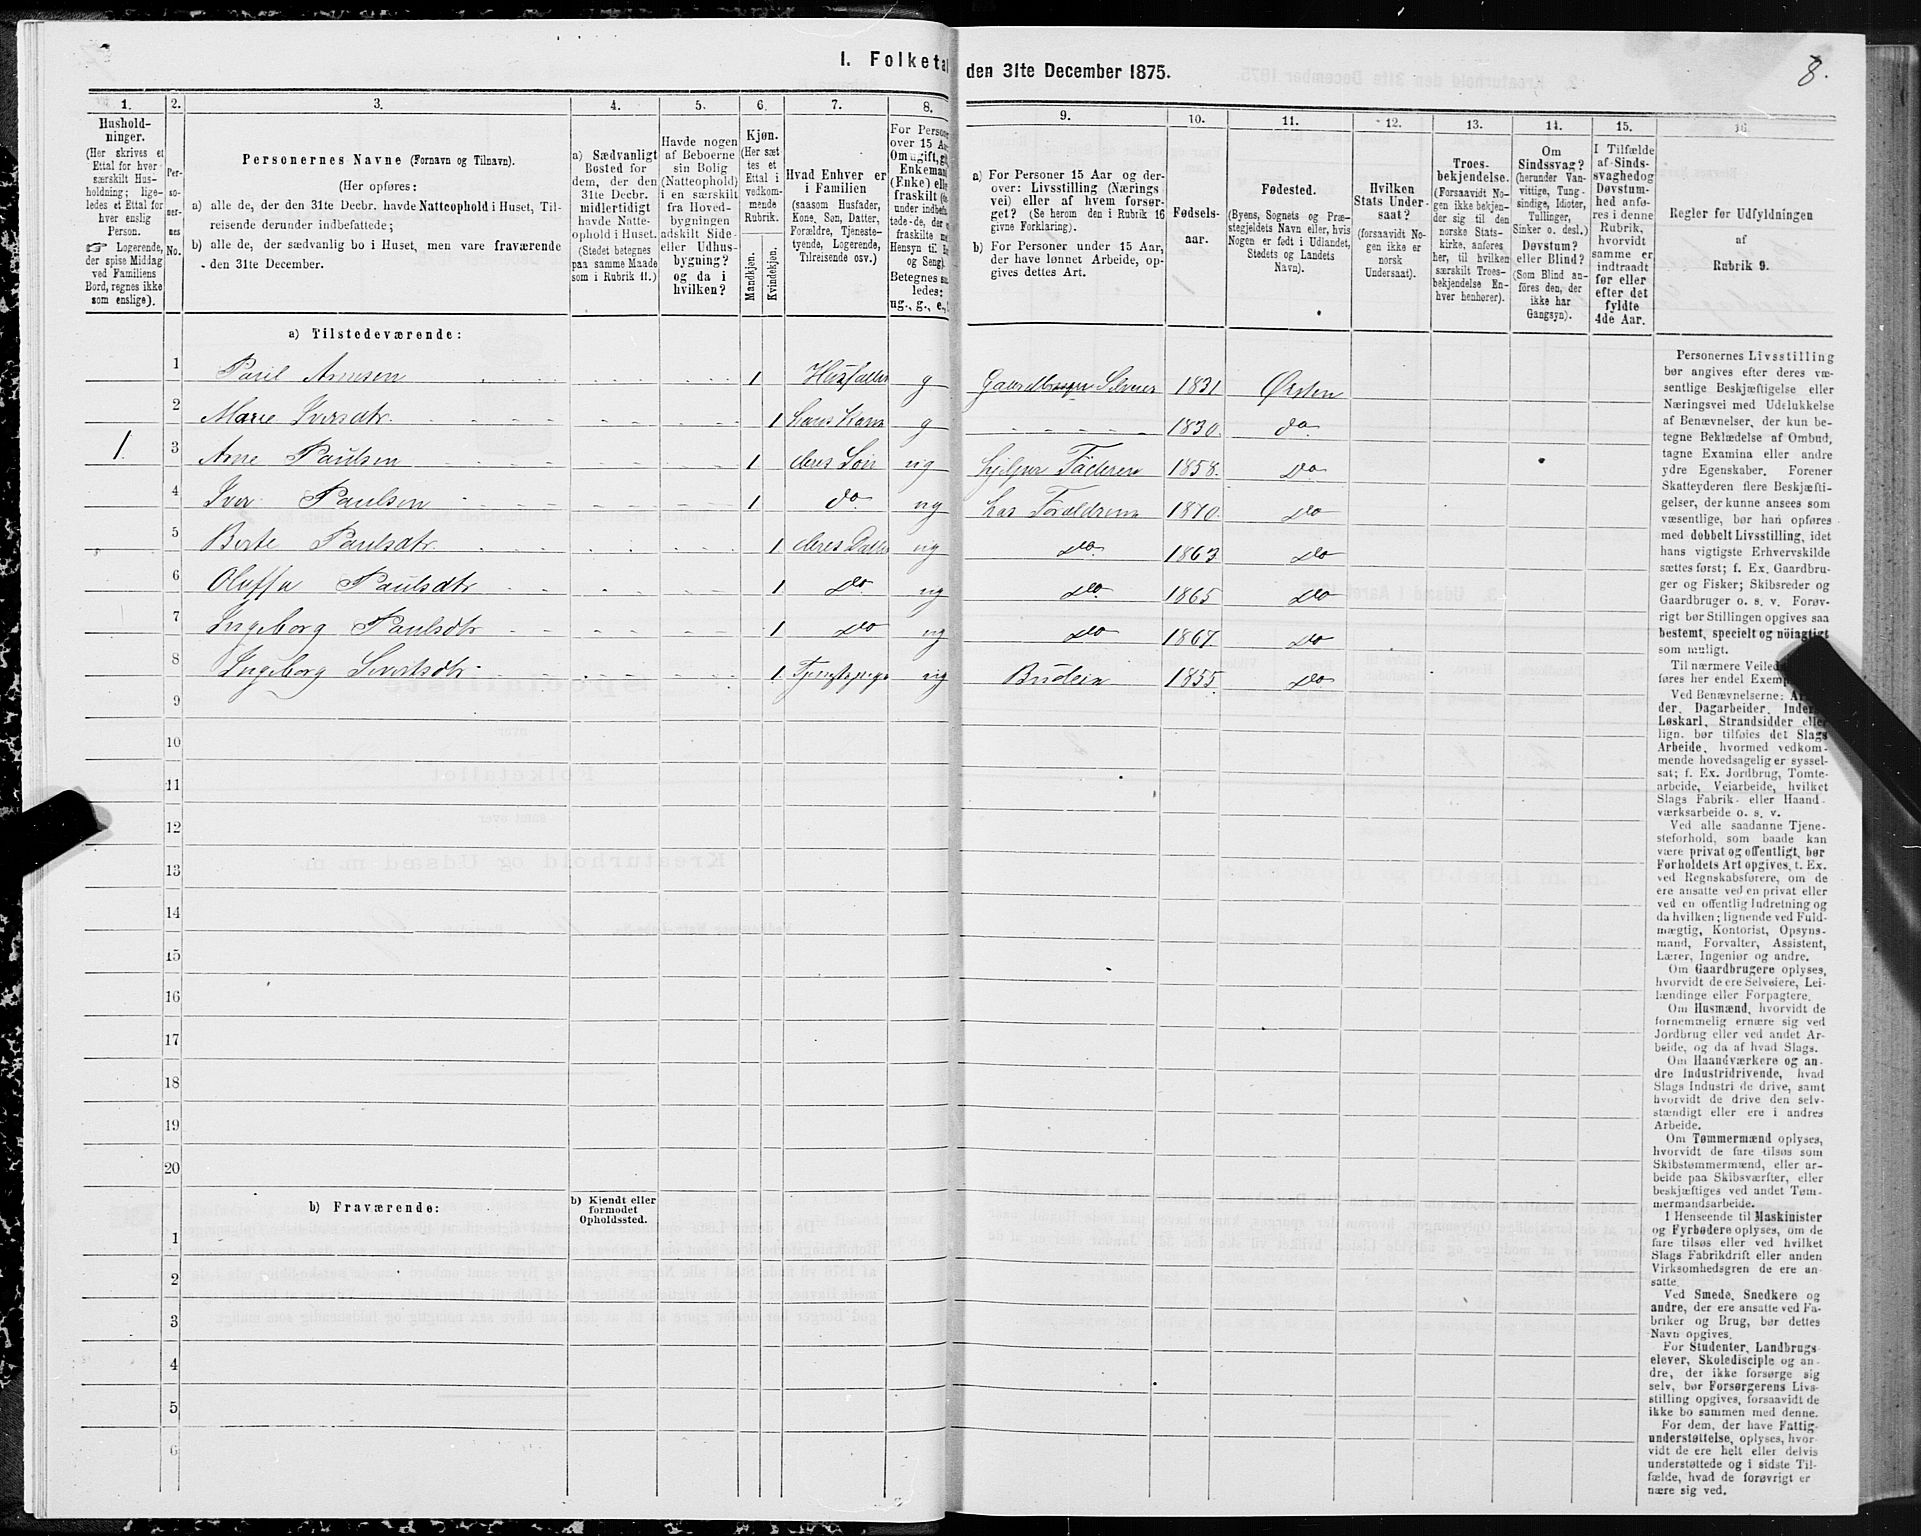 I. Folketal
den 31te December 1875.
8.
1.
2.
3.
4.
5.
6.
7.
8.
9.
10.
11.
12.
13.
14.
15.
16
Hushold-
ninger.
(Her skrives et
Ettal for hver
særskilt Hus-
holdning; lige-
ledes et Ettal for
hver enslig
Person.
☞ Logerende,
der spise Middag
ved Familiens
Bord, regnes ikke
som enslige).
Per-
so-
ner-
nes
No.
Personernes Navne (Fornavn og Tilnavn).
(Her opføres:
a) alle de, der den 31te Decbr. havde Natteophold i Huset, Til-
reisende derunder indbefattede;
b) alle de, der sædvanlig bo i Huset, men vare fraværende
den 31te December.
a) Sædvanligt
Bosted for
dem, der den
31te Decbr.
midlertidigt
havde Natte-
ophold i Huset.
(Stedet betegnes
paa samme Maade
som i Rubrik 11.)
Havde nogen
af Beboerne
sin Bolig
(Natteophold)
i en særskilt
fra Hoved-
bygningen
adskilt Side-
eller Udhus-
bygning?
og da i
hvilken?
Kjøn.
(Her sæt
tes et
Ettal i
vedkom-
mende
Rubrik.
Mandkjøn.
Kvindekjøn.
Hvad Enhver er
i Familien
(saasom Husfader,
Kone, Søn, Datter,
Forældre, Tjeneste-
tyende, Logerende,
Tilreisende osv.)
For Person
over 15 Aa
Om ugift, gi
Enkeman
(Enke) elle
fraskilt (de
under indbefa
tede de, der e
fraskilte me
Hensyn til B
og Seng).
Betegnes sa
ledes:
ug., g., e., f
a) For Personer 15 Aar og der-
over: Livsstilling (Nærings
vei) eller af hvem forsør-
get? (Se herom den i Rubrik 16
givne Forklaring).
b) For Personer under 15 Aar,
der have lønnet Arbeide, op-
gives dettes Art.
Fødsels-
aar.
Fødested.
(Byens, Sognets og Præ-
stegjeldets Navn eller, hvis
Nogen er født i Udlandet,
Stedets og Landets
Navn).
Hvilken
Stats Under-
saat?
(forsaavidt No-
gen ikke er
norsk
Undersaat).
Troes-
bekjendelse.
(Forsaavidt No-
gen ikke bekjen-
der sig til den
norske Stats-
kirke, anføres
her, til hvilken
særskilt Troes-
bekjendelse En-
hver henhører).
Om
Sindssvag?
(herunder Van-
vittige, Tung-
sindige, Idioter,
Tullinger,
Sinker o. desl.)
Døvstum?
eller Blind?
(Som Blind an-
føres den, der
ikke har
Gangsyn).
I Tilfælde
af Sinds-
svaghed og
Døvstum-
hed anfø-
res i denne
Rubrik,
hvorvidt
samme er
indtraadt
før eller
efter det
fyldte
4de Aar.
Regler for Udfyldningen
af
Rubrik 9.
a) Tilstedeværende:
1 Paul Arnesen 1 Husfader g Gaardbruger Selveier 1831 Ørsten
2 Marie Iversdtr. 1 hans Kone g 1830 do.
1. 3 Arne Paulsen 1 deres Søn ug hjelper Faderen 1858. Do
4 Iver Paulsen 1 do. ug hos Forældrene 1870. Do
5 Berte Paulsdtr. 1 deres Datter ug Do. 1863 Do
6 Oluffa Paulsdtr 1 Do. ug Do. 1865 Do
7 Ingeborg Paulsdtr 1 Do ug Do 1867. Do
8 Ingeborg Sivertsdtr 1 Tjenestepige ug Budeie 1855. Do
9
10
11
12
13
14
15
16
17
18
19
20
b) Fraværende:
b) Kjendt eller
formodet
Opholdssted.
1
2
3
4
5
6
Personernes Livsstilling
bør angives efter deres væ-
sentlige Beskjæftigelse eller
Næringsvei med Udelukkelse
af Benævnelser, der kun be-
tegne Beklædelse af Ombud,
tagne Examina eller andre
ydre Egenskaber. Forener
Skatteyderen flere Beskjæfti-
gelser, der kunne ansees som
væsentlige, bør han opføres
med dobbelt Livsstilling, idet
hans vigtigste Erhvervskilde
sættes først; f. Ex. Gaardbru-
ger og Fisker; Skibsreder og
Gaardbruger o. s. v. Forøv-
rigt bør Stillingen opgives saa
bestemt, specielt og nøiagtigt
som muligt.
Til nærmere Veiled
føres her endel Exemp
Ved Benævnelserne: Ar
der, Dagarbeider, Inders
Løskarl, Strandsidder eller
lign. bør tilføies det Slags
Arbeide, hvormed vedkom-
mende hovedsagelig er syssel-
sat; f. Ex. Jordbrug, Tomte-
arbeide, Veiarbeide, hvilket
Slags Fabrik- eller Haand-
værksarbeide o. s. v.
Ved alle saadanne Tjene-
steforhold, som baade kan
være privat og offentligt, bør
Forholdets Art opgives, t. Ex.
ved Regnskabsførere, om de
ere ansatte ved en privat eller
ved en offentlig Indretning og
da hvilken; lignende ved Fuld-
mægtig, Kontorist, Opsyns-
mand, Forvalter, Assistent,
Lærer, Ingeniør og andre.
Om Gaardbrugere oplyses,
hvorvidt de ere Selveiere, Lei-
lændinge eller Forpagtere.
Om Husmænd, hvorvidt de
fornemmelig ernære sig ved
Jordbrug eller ved andet Ar-
beide, og da af hvad Slags.
Om Haandværkere og an-
dre Industridrivende, hvad
Slags Industri de drive, samt
hvorvidt de drive den selv-
stændigt eller ere i andres
Arbeide.
Om Tømmermænd oplyses,
hvorvidt de fare tilsøs som
Skibstømmermænd, eller ar-
beide paa Skibsværfter, eller
beskjæftiges ved andet Tøm-
mermandsarbeide.
I Henseende til Maskinister
og Fyrbødere oplyses, om de
fare tilsøs eller ved hvilket
Slags Fabrikdrift eller anden
Virksomhedsgren de ere an-
satte.
Ved Smede, Snedkere og
andre, der ere ansatte ved Fa-
briker og Brug, bør dettes
Navn opgives.
For Studenter, Landbrugs-
elever, Skoledisciple og an-
dre, der ikke forsørge sig
selv, bør Forsørgerens Livs-
stilling opgives, forsaavidt de
ikke bo sammen med denne.
For dem, der have Fattig-
understøttelse, oplyses, hvor-
vidt de ere helt eller delvis
understøttede og i sidste Til-
fælde, hvad de forøvrigt er
nære sig ved.